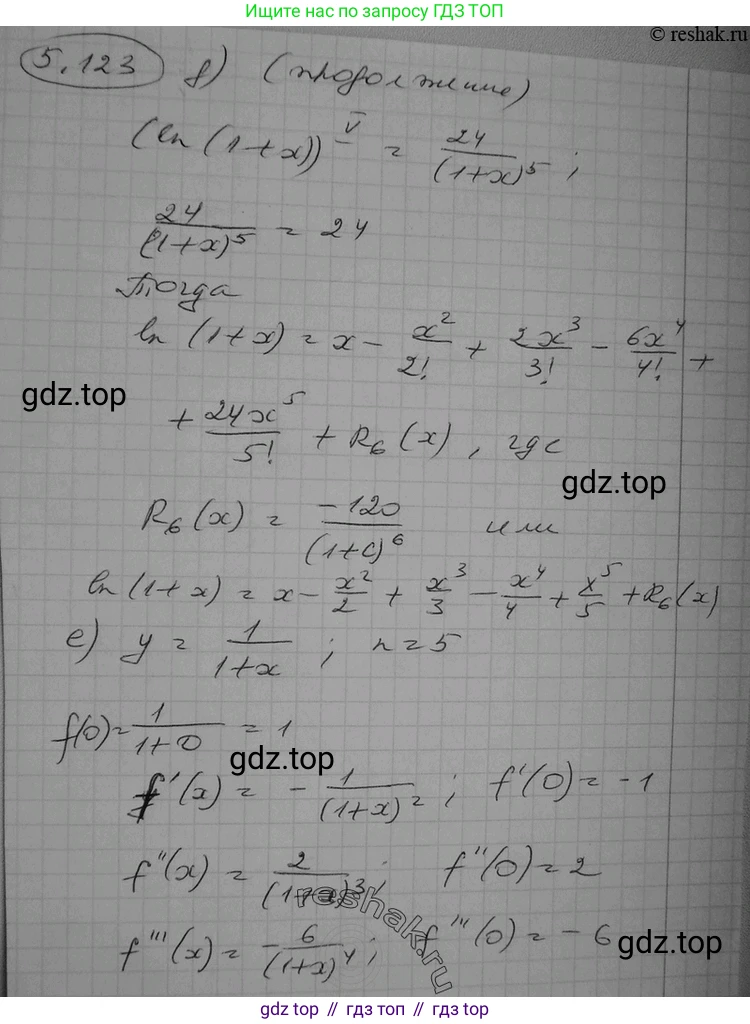 Ищите нас по запросу ГДЗ ТОП
© reshak.ru
5.123 д) (продолжение)
(ln(1+x))^V = 24/(1+x)^5 ;
24/(1+x)^5 = 24
Тогда
ln (1+x) = x - x^2/2! + 2x^3/3! - 6x^4/4! +
gdz.top
+ 24x^5/5! + R_6(x), где
gdz.top
R_6(x) = -120/(1+c)^6 или
ln (1+x) = x - x^2/2 + x^3/3 - x^4/4 + x^5/5 + R_6(x)
е) y = 1/(1+x) ; n=5
f(0) = 1/(1+0) = 1
gdz.top
f'(x) = - 1/(1+x)^2 ; f'(0) = -1
f''(x) = 2/(1+x)^3 ; f''(0) = 2
reshak.ru
f'''(x) = - 6/(1+x)^4 ; f'''(0) = -6
gdz.top
gdz top // гдз топ // gdz top // гдз топ